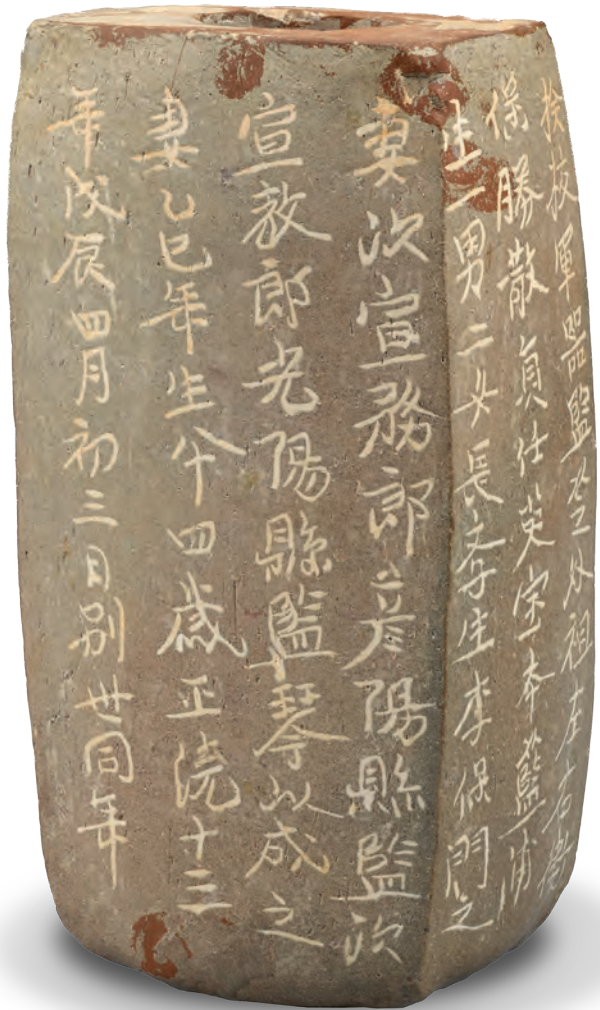 撿挍軍器監外祖左右衛
保勝散貟仕英本藍浦
生一男二女長斈生李保門之
妻次宣務郎彦陽縣監次
宣教郎光陽縣監琴以成之
妻乙巳年生卄四歲正統十三
年戊辰四月初三日別世同年